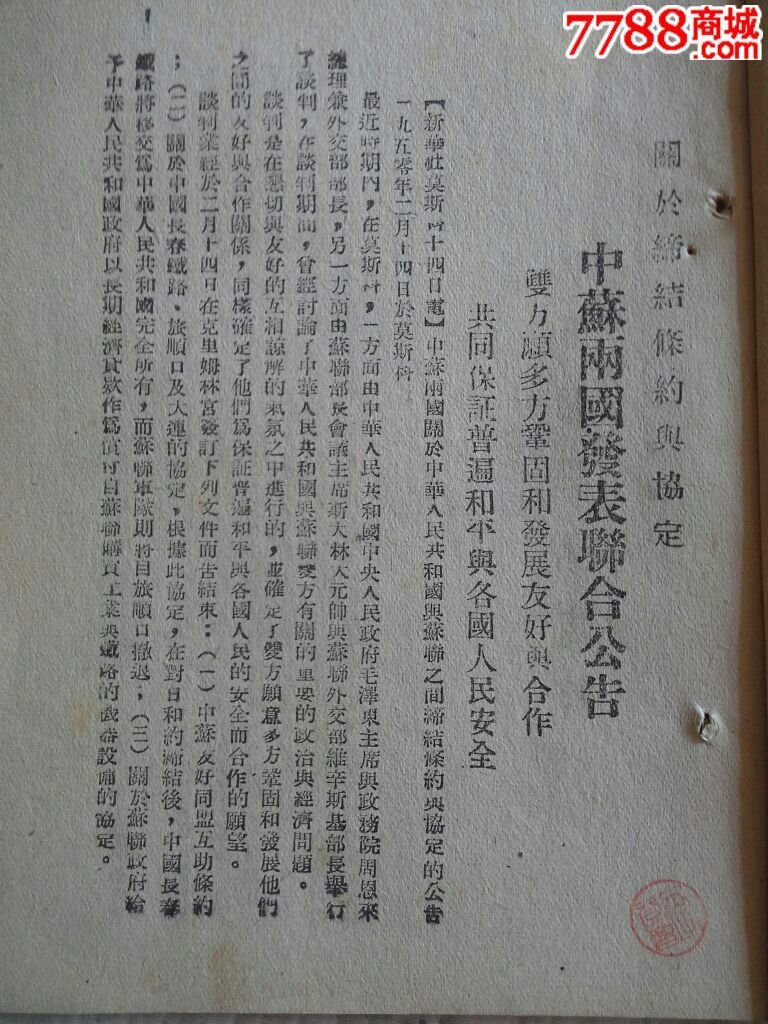 7788商城
.com
關於締結條約與協定
中蘇兩國發表聯合公告
雙方願多方鞏固和發展友好與合作
共同保証普遍和平與各國人民安全
【新華社莫斯科十四日電】中蘇兩國關於中華人民共和國與蘇聯之間締結條約與協定的公告
一九五零年二月十四日於莫斯科
最近時期內，在莫斯科，一方面由中華人民共和國中央人民政府毛澤東主席與政務院周恩來
總理兼外交部部長，另一方面由蘇聯部長會議主席斯大林大元帥與蘇聯外交部維辛斯基部長舉行
了談判，在談判期間，曾經討論了中華人民共和國與蘇聯雙方有關的重要的政治與經濟問題。
談判是在懇切與友好的互相諒解的氣氛之中進行的，並確定了雙方願意多方鞏固和發展他們
之間的友好與合作關係，同樣確定了他們爲保証普遍和平與各國人民的安全而合作的願望。
談判業經於二月十四日在克里姆林宮簽訂下列文件而告結束：（一）中蘇友好同盟互助條約
；（二）關於中國長春鐵路、旅順口及大連的協定，根據此協定，在對日和約締結後，中國長春
鐵路將移交爲中華人民共和國完全所有，而蘇聯軍隊則將自旅順口撤退；（三）關於蘇聯政府給
予中華人民共和國政府以長期經濟貸款作爲償付自蘇聯購買工業與鐵路的機器設備的協定。